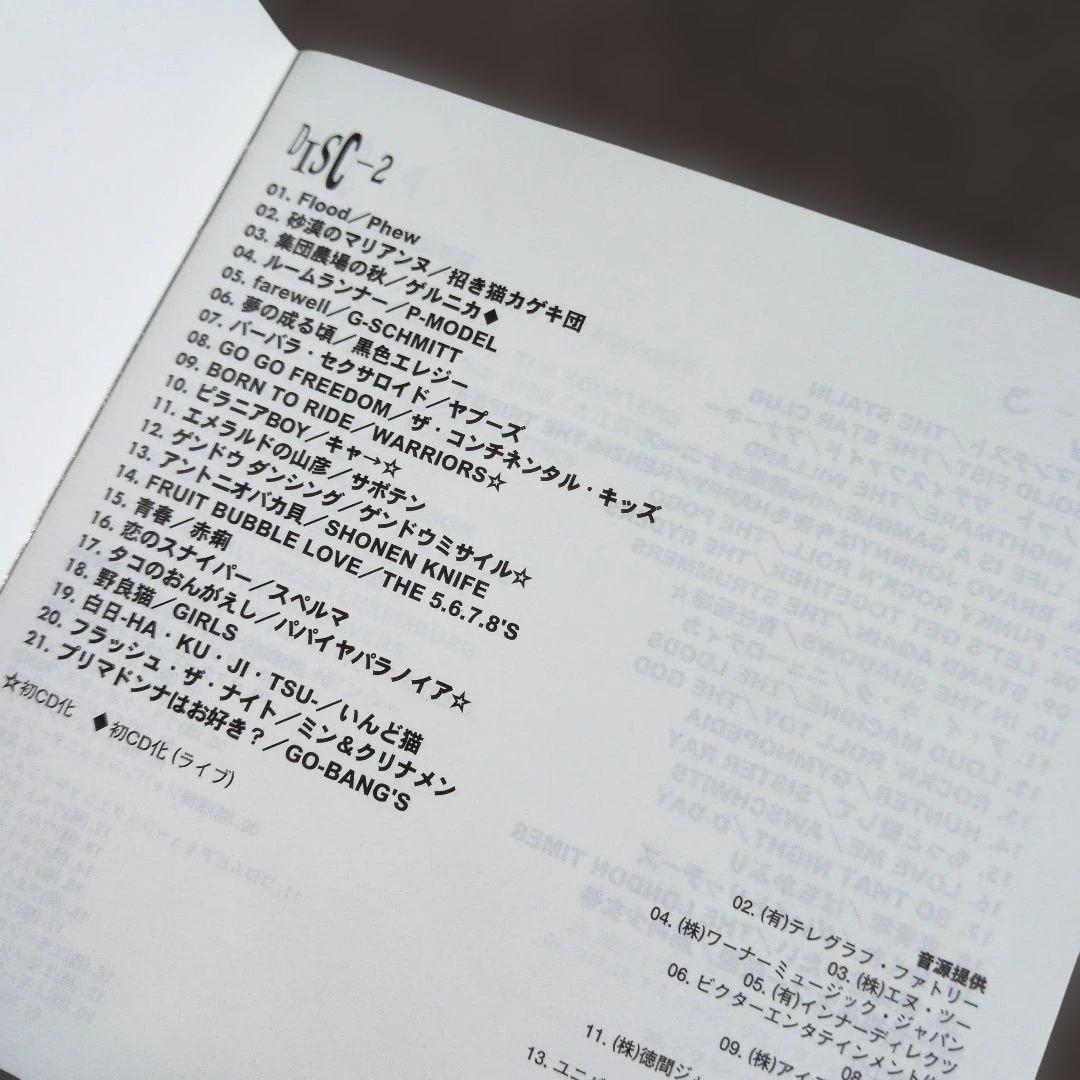 DISC-2
01. Flood／Phew
02. 砂漠のマリアンヌ／招き猫カゲキ団
03. 集団農場の秋／ゲルニカ◆
04. ルームランナー／P-MODEL
05. farewell／G-SCHMITT
06. 夢の成る頃／黒色エレジー
07. バーバラ・セクサロイド／ヤプーズ
08. GO GO FREEDOM／ザ・コンチネンタル・キッズ
09. BORN TO RIDE／WARRIORS☆
10. ピラニアBOY／キャ→☆
11. エメラルドの山彦／サボテン
12. ゲンドウ ダンシング／ゲンドウミサイル☆
13. アントニオバカ貝／SHONEN KNIFE
14. FRUIT BUBBLE LOVE／THE 5.6.7.8'S
15. 青春／赤痢
16. 恋のスナイパー／スペルマ
17. タコのおんがえし／パパイヤパラノイア☆
18. 野良猫／GIRLS
19. 白日-HA・KU・JI・TSU-／いんど猫
20. フラッシュ・ザ・ナイト／ミン＆クリナメン
21. プリマドンナはお好き？／GO-BANG'S
☆初CD化　◆初CD化 (ライブ)
音源提供
02. (有)テレグラフ・ファトリー
03. (株)エヌ・ツー
04. (株)ワーナーミュージック・ジャパン
05. (有)インナーディレクツ
06. ビクターエンタテインメント
08
09. (株)アイ
11. (株)徳間ジ
13. ユニ